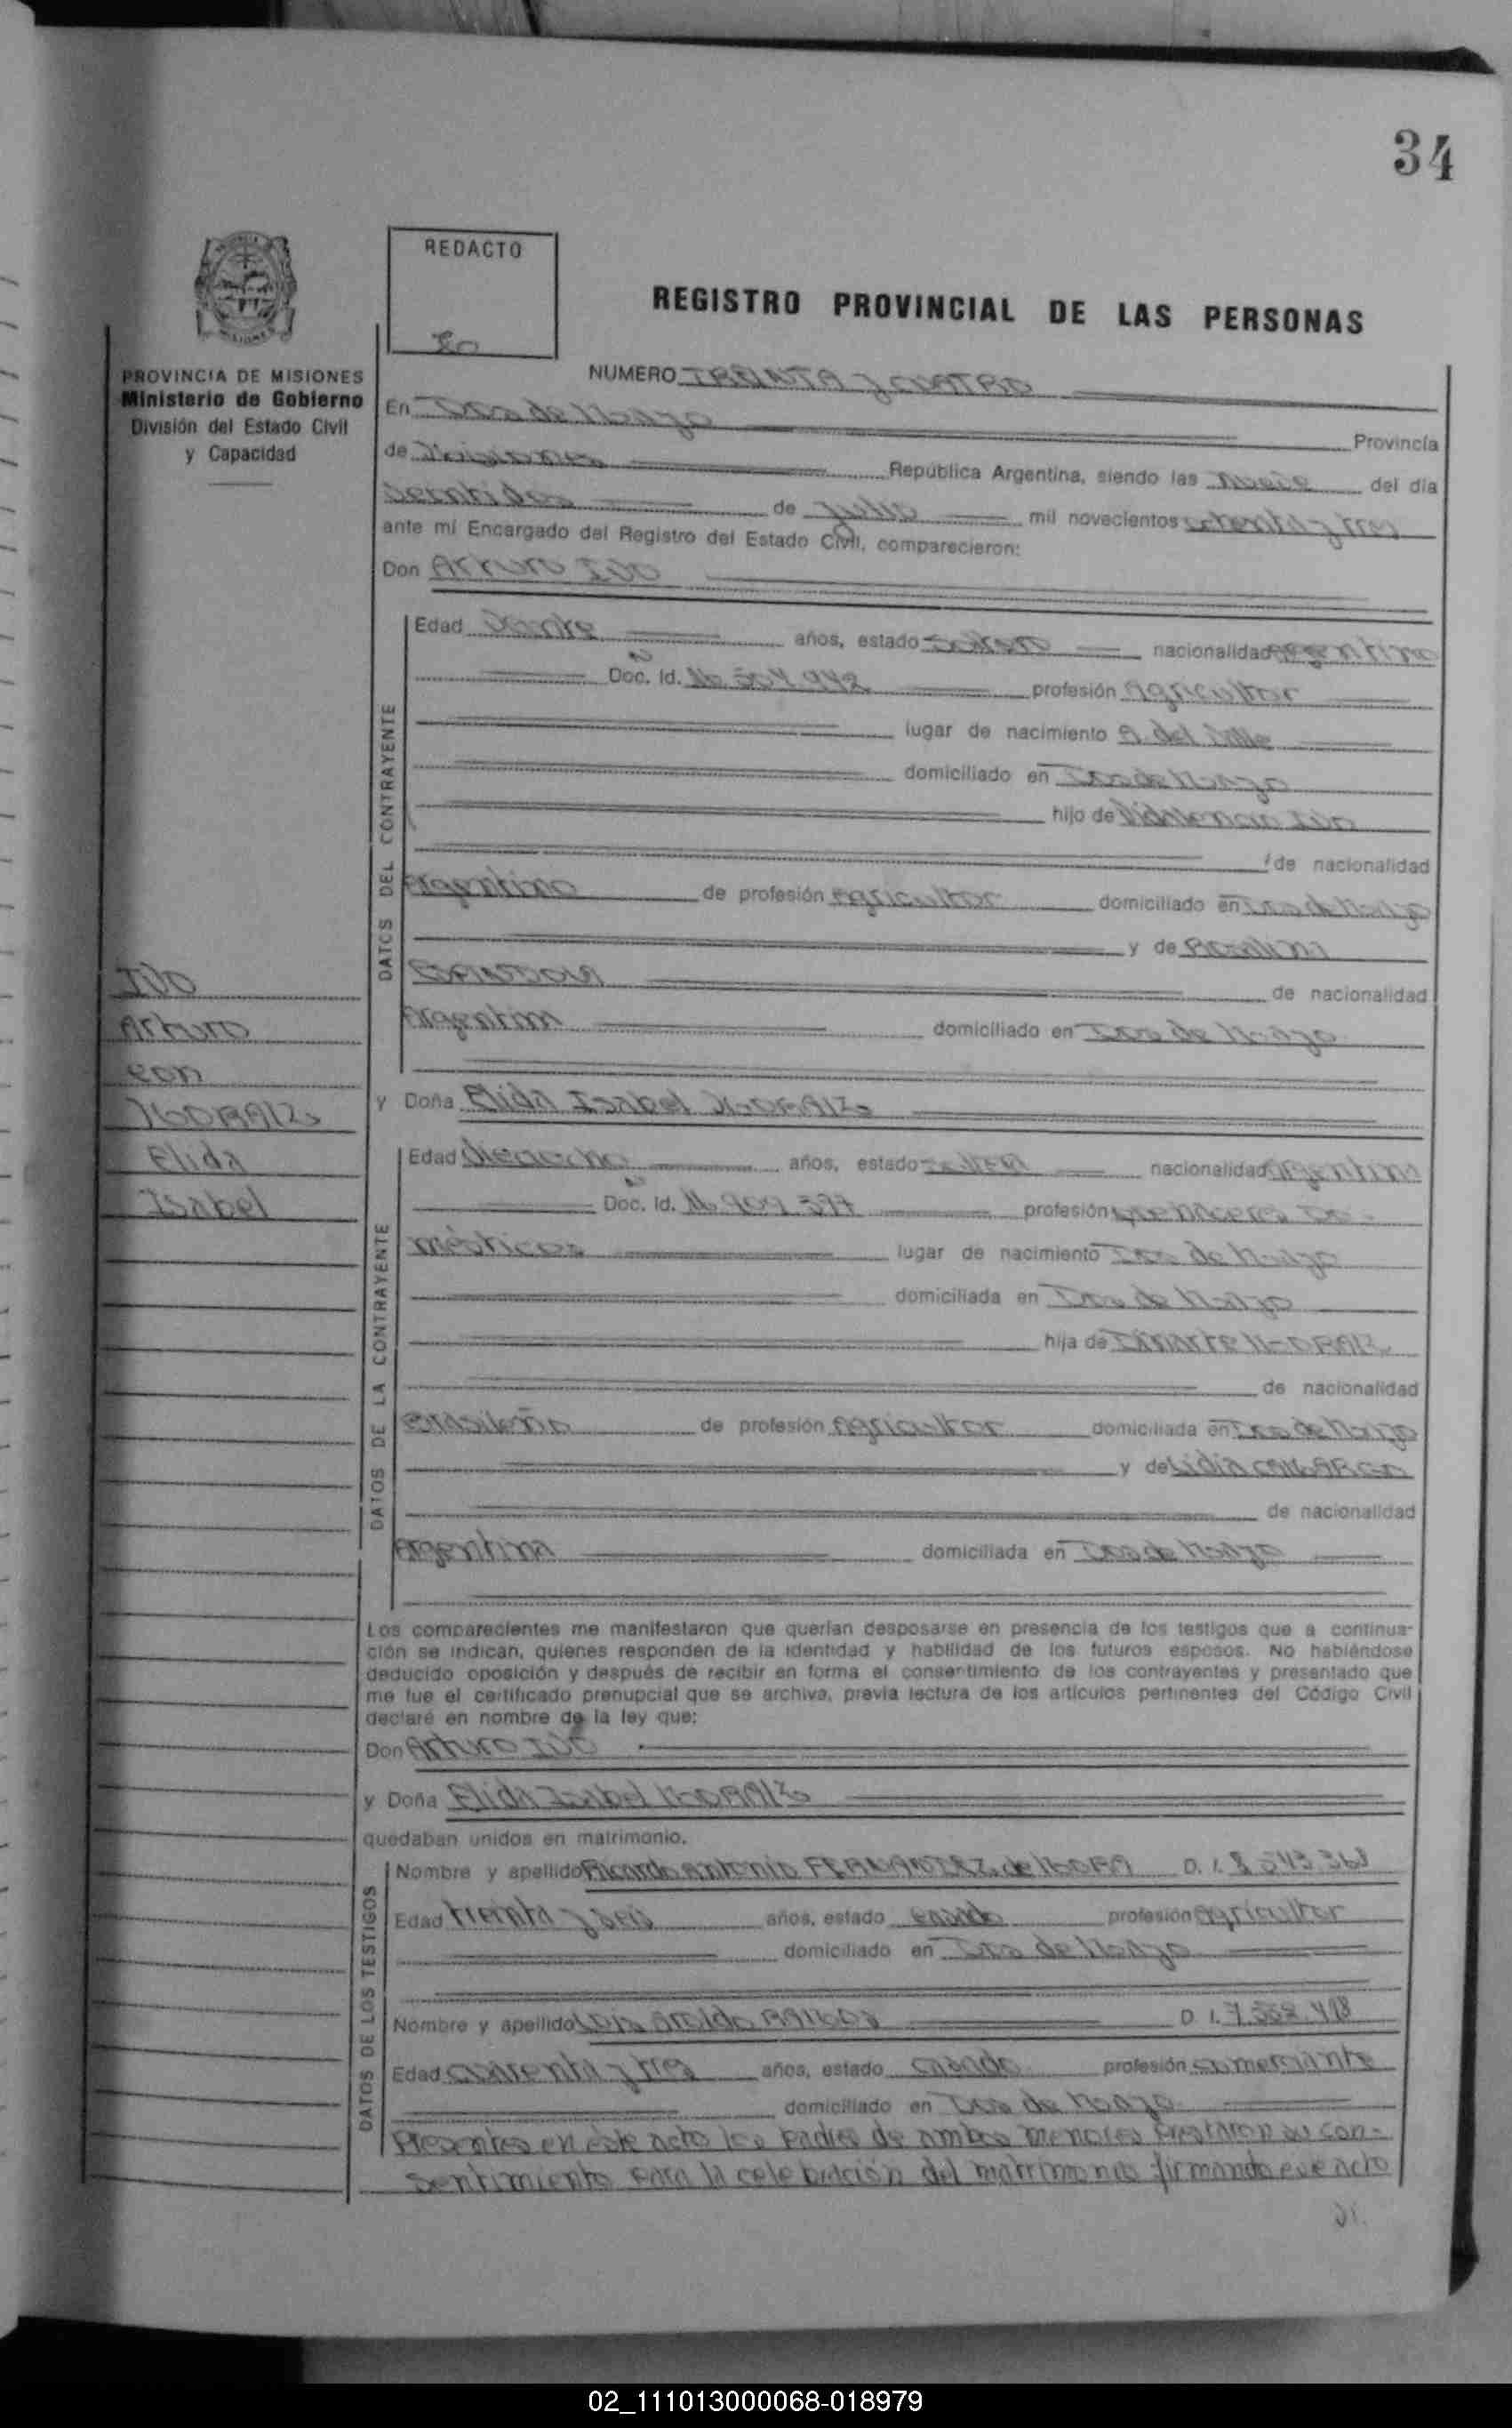 34
REDACTO
REGISTRO PROVINCIAL DE LAS PERSONAS
PROVINCIA DE MISIONES
Ministerio de Gobierno
División del Estado Civil
y Capacidad
NUMERO TREINTA y CUATRO
En Dos de Mayo Provincia
de Misiones República Argentina, siendo las nueve del día
Veintidos de julio mil novecientos ochenta y tres
ante mí Encargado del Registro del Estado Civil, comparecieron:
Don Arturo IVO
DATOS DEL CONTRAYENTE
Edad veinte años, estado soltero nacionalidad Argentino
Doc. Id. 16.504.942 profesión Agricultor
lugar de nacimiento A. del Valle
domiciliado en Dos de Mayo
hijo de IVO
de nacionalidad
Argentino de profesión Agricultor domiciliado en Dos de Mayo
y de
de nacionalidad
Argentina domiciliado en Dos de Mayo
IVO
Arturo
con
MORAIZ
Elida
Isabel
y Doña Elida Isabel MORAIZ
DATOS DE LA CONTRAYENTE
Edad dieciocho años, estado soltera nacionalidad Argentina
Doc. Id. 16.909.377 profesión quehaceres Do-
mésticos lugar de nacimiento Dos de Mayo
domiciliada en Dos de Mayo
hija de MORAIZ
de nacionalidad
Brasileño de profesión Agricultor domiciliada en Dos de Mayo
y de Lidia CAMARGO
de nacionalidad
Argentina domiciliada en Dos de Mayo
Los comparecientes me manifestaron que querían desposarse en presencia de los testigos que a continua-
ción se indican, quienes responden de la identidad y habilidad de los futuros esposos. No habiéndose
deducido oposición y después de recibir en forma el consentimiento de los contrayentes y presentado que
me fue el certificado prenupcial que se archiva, previa lectura de los artículos pertinentes del Código Civil
declaré en nombre de la ley que:
Don Arturo IVO
y Doña Elida Isabel MORAIZ
quedaban unidos en matrimonio.
DATOS DE LOS TESTIGOS
Nombre y apellido Ricardo Antonio FERNANDEZ de MORA D. I. 8.543.368
Edad treinta y seis años, estado casado profesión Agricultor
domiciliado en Dos de Mayo
Nombre y apellido Luis Aroldo RAMOS D. I. 7.552.418
Edad cuarenta y tres años, estado casado profesión comerciante
domiciliado en Dos de Mayo
Presentes en este acto los padres de ambos menores prestaron su con-
sentimiento para la celebración del matrimonio firmando ese acto
02_111013000068-018979